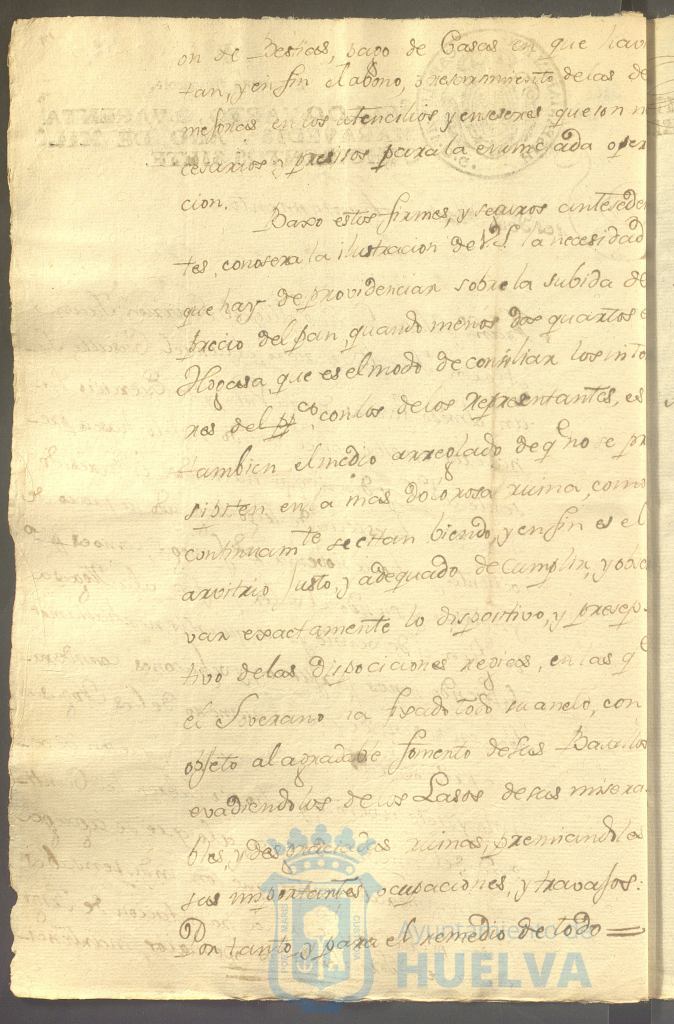 on de Bestias, pago de Casas en que havi
tan, y en fin el abono, o resarcimiento de las de
mejoras en los utencilios y enseres que son n
cesarios y presisos para la enunciada oper
cion.
Baxo estos firmes, y seguros antesede
tes, conosera la ilustracion de VS. la necesidad
que hay de providenciar sobre la subida de
precio del pan, quando menos dos quartos e
Hogasa, que es el modo de conciliar los inte
res del ppco, con los de los representantes, es
tambien el medio arreglado de qe no se pr
sipiten en la mas dolorosa ruina, como
continuamte se están biendo, y en fin es el
arvitrio Justo, y adequado de Cumplir, y obse
var exactamente lo dispositivo, y presep
tivo de las disposiciones regias, en las qe
el Soverano ha fixado todo su anelo, con
objeto al agradable fomento de sus Basallos
evadiendolos de los Lasos de sus misera
bles, y desgraciadas ruinas, premiandoles
sus importantes ocupaciones, y travajos:
Por tanto, y para el remedio de todo=
Ayuntamiento de
HUELVA